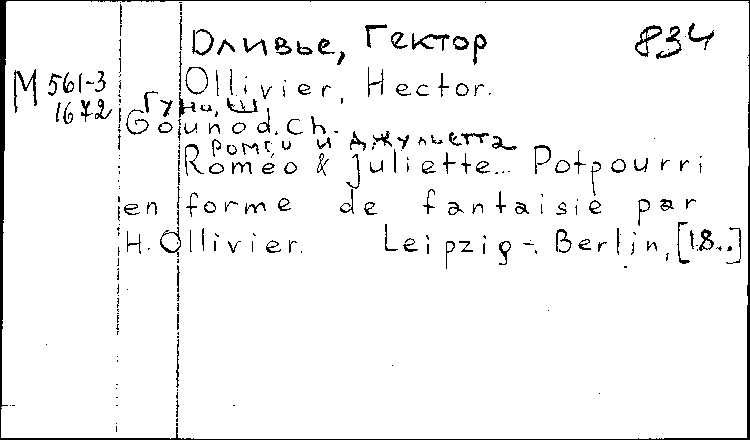 Оливье, Гектор 834
М 561-3 Ollivier, Hector.
1672 Гуно, Ш
Gounod. Ch.
Ромео и Джульетта
Roméo & Juliette... Potpourri
en forme de fantaisie par
H. Ollivier. Leipzig-Berlin, [18..]